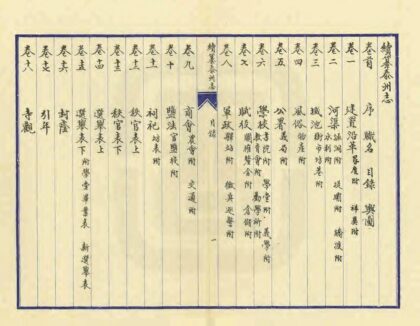 續纂泰州志
卷首 序 職名 目錄 輿圖
卷一 建置沿革 晷度附 祥異附
卷二 河渠 隄湖附 堤閘附 橋渡附 水利附
卷三 城池 街市坊巷附
卷四 風俗 物產附
卷五 公署 義局附
卷六 學校 書院附 學堂附 義學附 教育會附 勸學所附
卷七 賦役 關雁釐金附 倉儲附
卷八 軍政 驛站附 徵兵巡警附
續纂泰州志 目錄 一
卷九 商會 農會附 交通附
卷十 鹽法 官鹽棧附
卷十一 祠祀 坊表附
卷十二 鉄官表上
卷十三 秩官表下
卷十四 選舉表上
卷十五 選舉表下 附學堂畢業表 新選舉表
卷十六 封蔭
卷十七 引年
卷十八 寺觀